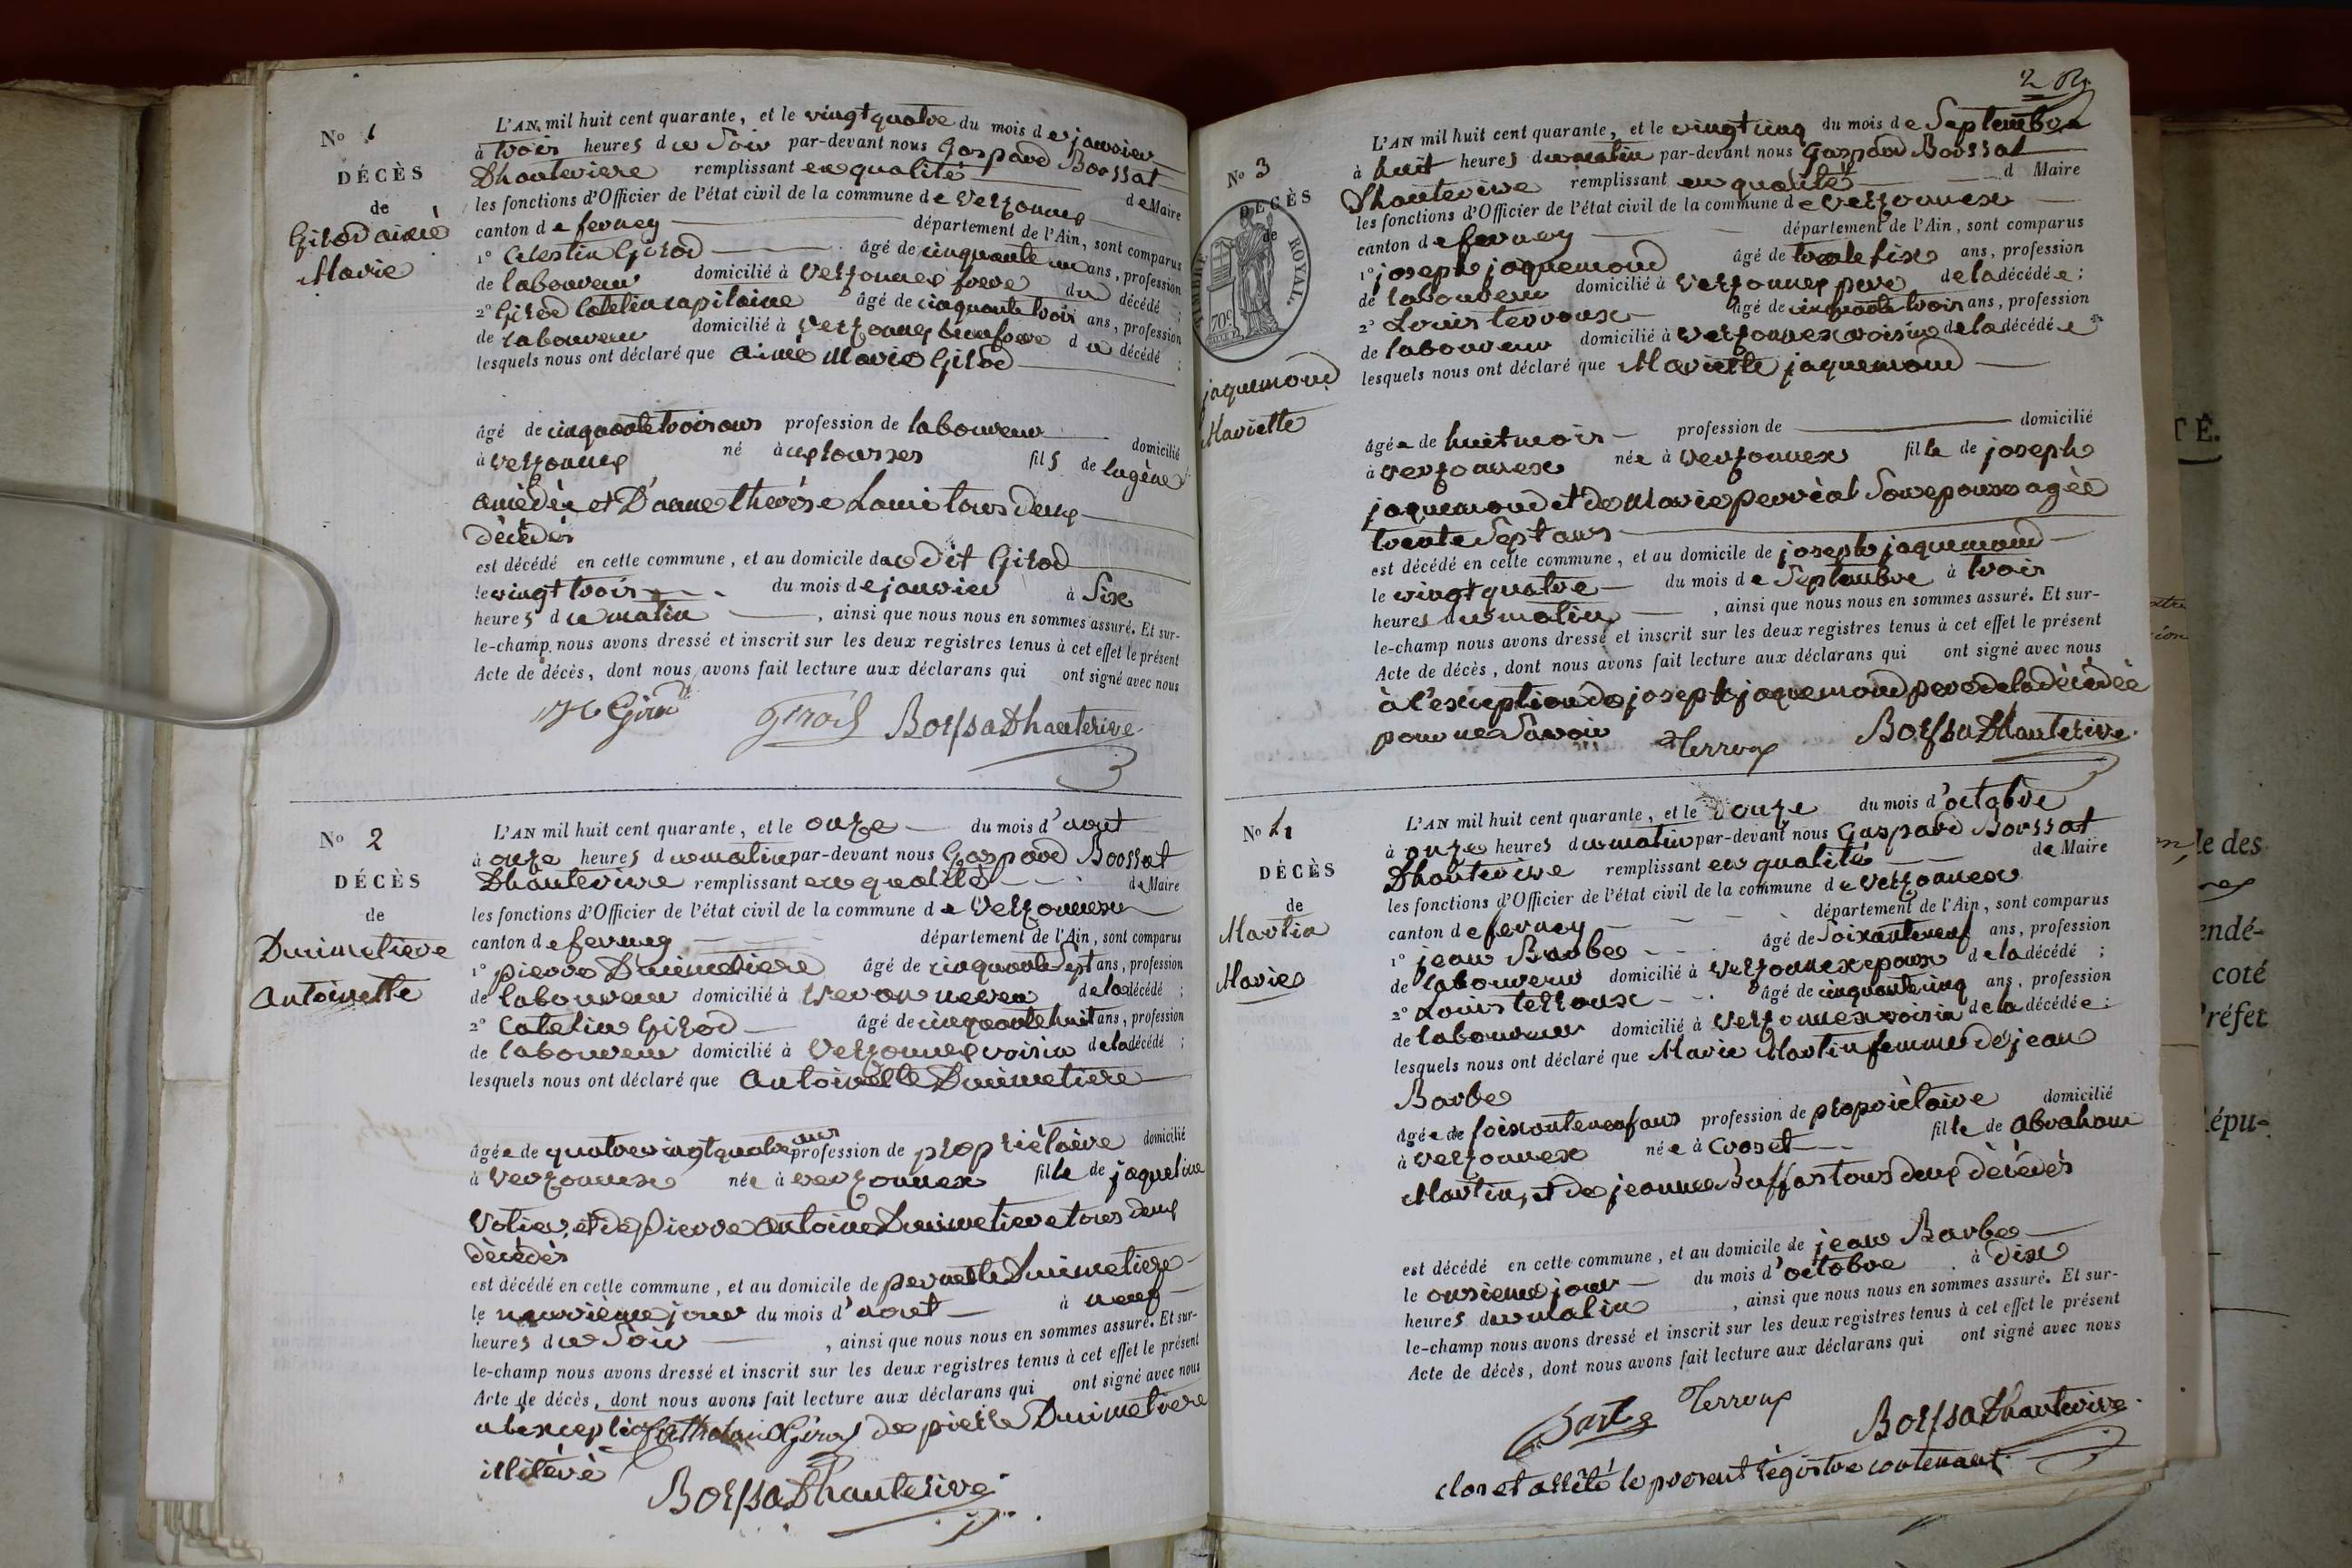 No 1
DÉCÈS
de
Girod aimé
Marie
L'AN mil huit cent quarante, et le vingt quatre du mois de janvier
à trois heures du Soir par-devant nous Gaspard Boossat
Dhauterive remplissant en qualité de Maire
les fonctions d'Officier de l'état civil de la commune de Versonnex
canton de ferney département de l'Ain, sont comparus
1° Celestin Girod âgé de cinquante un ans, profession
de laboureur domicilié à Versonnex frere du décédé ;
2° Girod Catelin capitaine âgé de cinquante trois ans, profession
de Laboureur domicilié à Versonnex du décédé ;
lesquels nous ont déclaré que aimé Marie Girod
âgé de cinquante trois ans profession de laboureur domicilié
à Versonnex né à fils de
amédée et D'anne therése Lami tous deux
décédés
est décédé en cette commune, et au domicile du dit Girod
le vingt trois du mois de janvier à Six
heures du matin, ainsi que nous nous en sommes assuré. Et sur-
le-champ nous avons dressé et inscrit sur les deux registres tenus à cet effet le présent
Acte de décès, dont nous avons fait lecture aux déclarans qui ont signé avec nous
Girod Girod BoissaDhauterive
No 2
DÉCÈS
de
Durimetiere
Antoinette
L'AN mil huit cent quarante, et le onze du mois d'aout
à onze heures du matin par-devant nous Gaspard Boossat
Dhauterive remplissant en qualité de Maire
les fonctions d'Officier de l'état civil de la commune de Versonnex
canton de ferney département de l'Ain, sont comparus
1° pierre Durimetiere âgé de cinquante Sept ans, profession
de laboureur domicilié à neveu de la décédé ;
2° Catelin Girod âgé de cinquante huit ans, profession
de laboureur domicilié à Versonnex voisin de la décédé ;
lesquels nous ont déclaré que Antoinette Durimetiere
âgée de quatre vingt quatre ans profession de propriétaire domicilié
à Versonnex née à versonnex fille de jaqueline
Votier, et de Pierre antoine Durimetiere tous deux
décédés
est décédé en cette commune, et au domicile de pernette Durimetiere
le neuvième jour du mois d'aout à neuf
heures du Soir, ainsi que nous nous en sommes assuré. Et sur-
le-champ nous avons dressé et inscrit sur les deux registres tenus à cet effet le présent
Acte de décès, dont nous avons fait lecture aux déclarans qui ont signé avec nous
a lexception Girod de pierre Durimetiere
illitéré
BoissaDhauterive
No 3
DÉCÈS
de
TIMBRE ROYAL.
70c
jaquemoud
Mariette
L'AN mil huit cent quarante, et le vingt cinq du mois de Septembre
à huit heures du matin par-devant nous Gaspard Boossat
Dhauterive remplissant en qualité d Maire
les fonctions d'Officier de l'état civil de la commune de Versonnex
canton de ferney département de l'Ain, sont comparus
1° joseph jaquemoud âgé de trente six ans, profession
de laboureur domicilié à Versonnex pere de la décédée ;
2° Louis terroux âgé de cinquante trois ans, profession
de laboureur domicilié à versonnex voisin de la décédée
lesquels nous ont déclaré que Mariette jaquemoud
âgée de huit mois profession de domicilié
à versonnex née à versonnex fille de joseph
jaquemoud et de Marie perréal Son epouse agée
trente Sept ans
est décédé en cette commune, et au domicile de joseph jaquemoud
le vingt quatre du mois de Septembre à trois
heures du matin, ainsi que nous nous en sommes assuré. Et sur-
le-champ nous avons dressé et inscrit sur les deux registres tenus à cet effet le présent
Acte de décès, dont nous avons fait lecture aux déclarans qui ont signé avec nous
à l'exception de joseph jaquemoud pere de la décédée
pour ne Savoir Terroux BoissaDhauterive
No 4
DÉCÈS
de
Martin
Marie
L'AN mil huit cent quarante, et le onze du mois d'octobre
à onze heures du matin par-devant nous Gaspard Boossat
Dhauterive remplissant en qualité de Maire
les fonctions d'Officier de l'état civil de la commune de Versonnex
canton de ferney département de l'Ain, sont comparus
1° jean Barbe âgé de Soixante neuf ans, profession
de laboureur domicilié à Versonnex epoux de la décédé ;
2° Louis terroux âgé de cinquante cinq ans, profession
de laboureur domicilié à Versonnex voisin de la décédée ;
lesquels nous ont déclaré que Marie Martin femme de jean
Barbe
âgée de soixante neuf ans profession de propriètaire domicilié
à versonnex née à Croset fille de abraham
Martin, et de jeanne tous deux décédés
est décédé en cette commune, et au domicile de jean Barbe
le onsieme jour du mois d'octobre à dix
heures du matin, ainsi que nous nous en sommes assuré. Et sur-
le-champ nous avons dressé et inscrit sur les deux registres tenus à cet effet le présent
Acte de décès, dont nous avons fait lecture aux déclarans qui ont signé avec nous
Barbe Terroux BoissaDhauterive
clos et arrêté le present régistre contenant
TÉ.
le des
endé-
coté
Préfet
Répu-